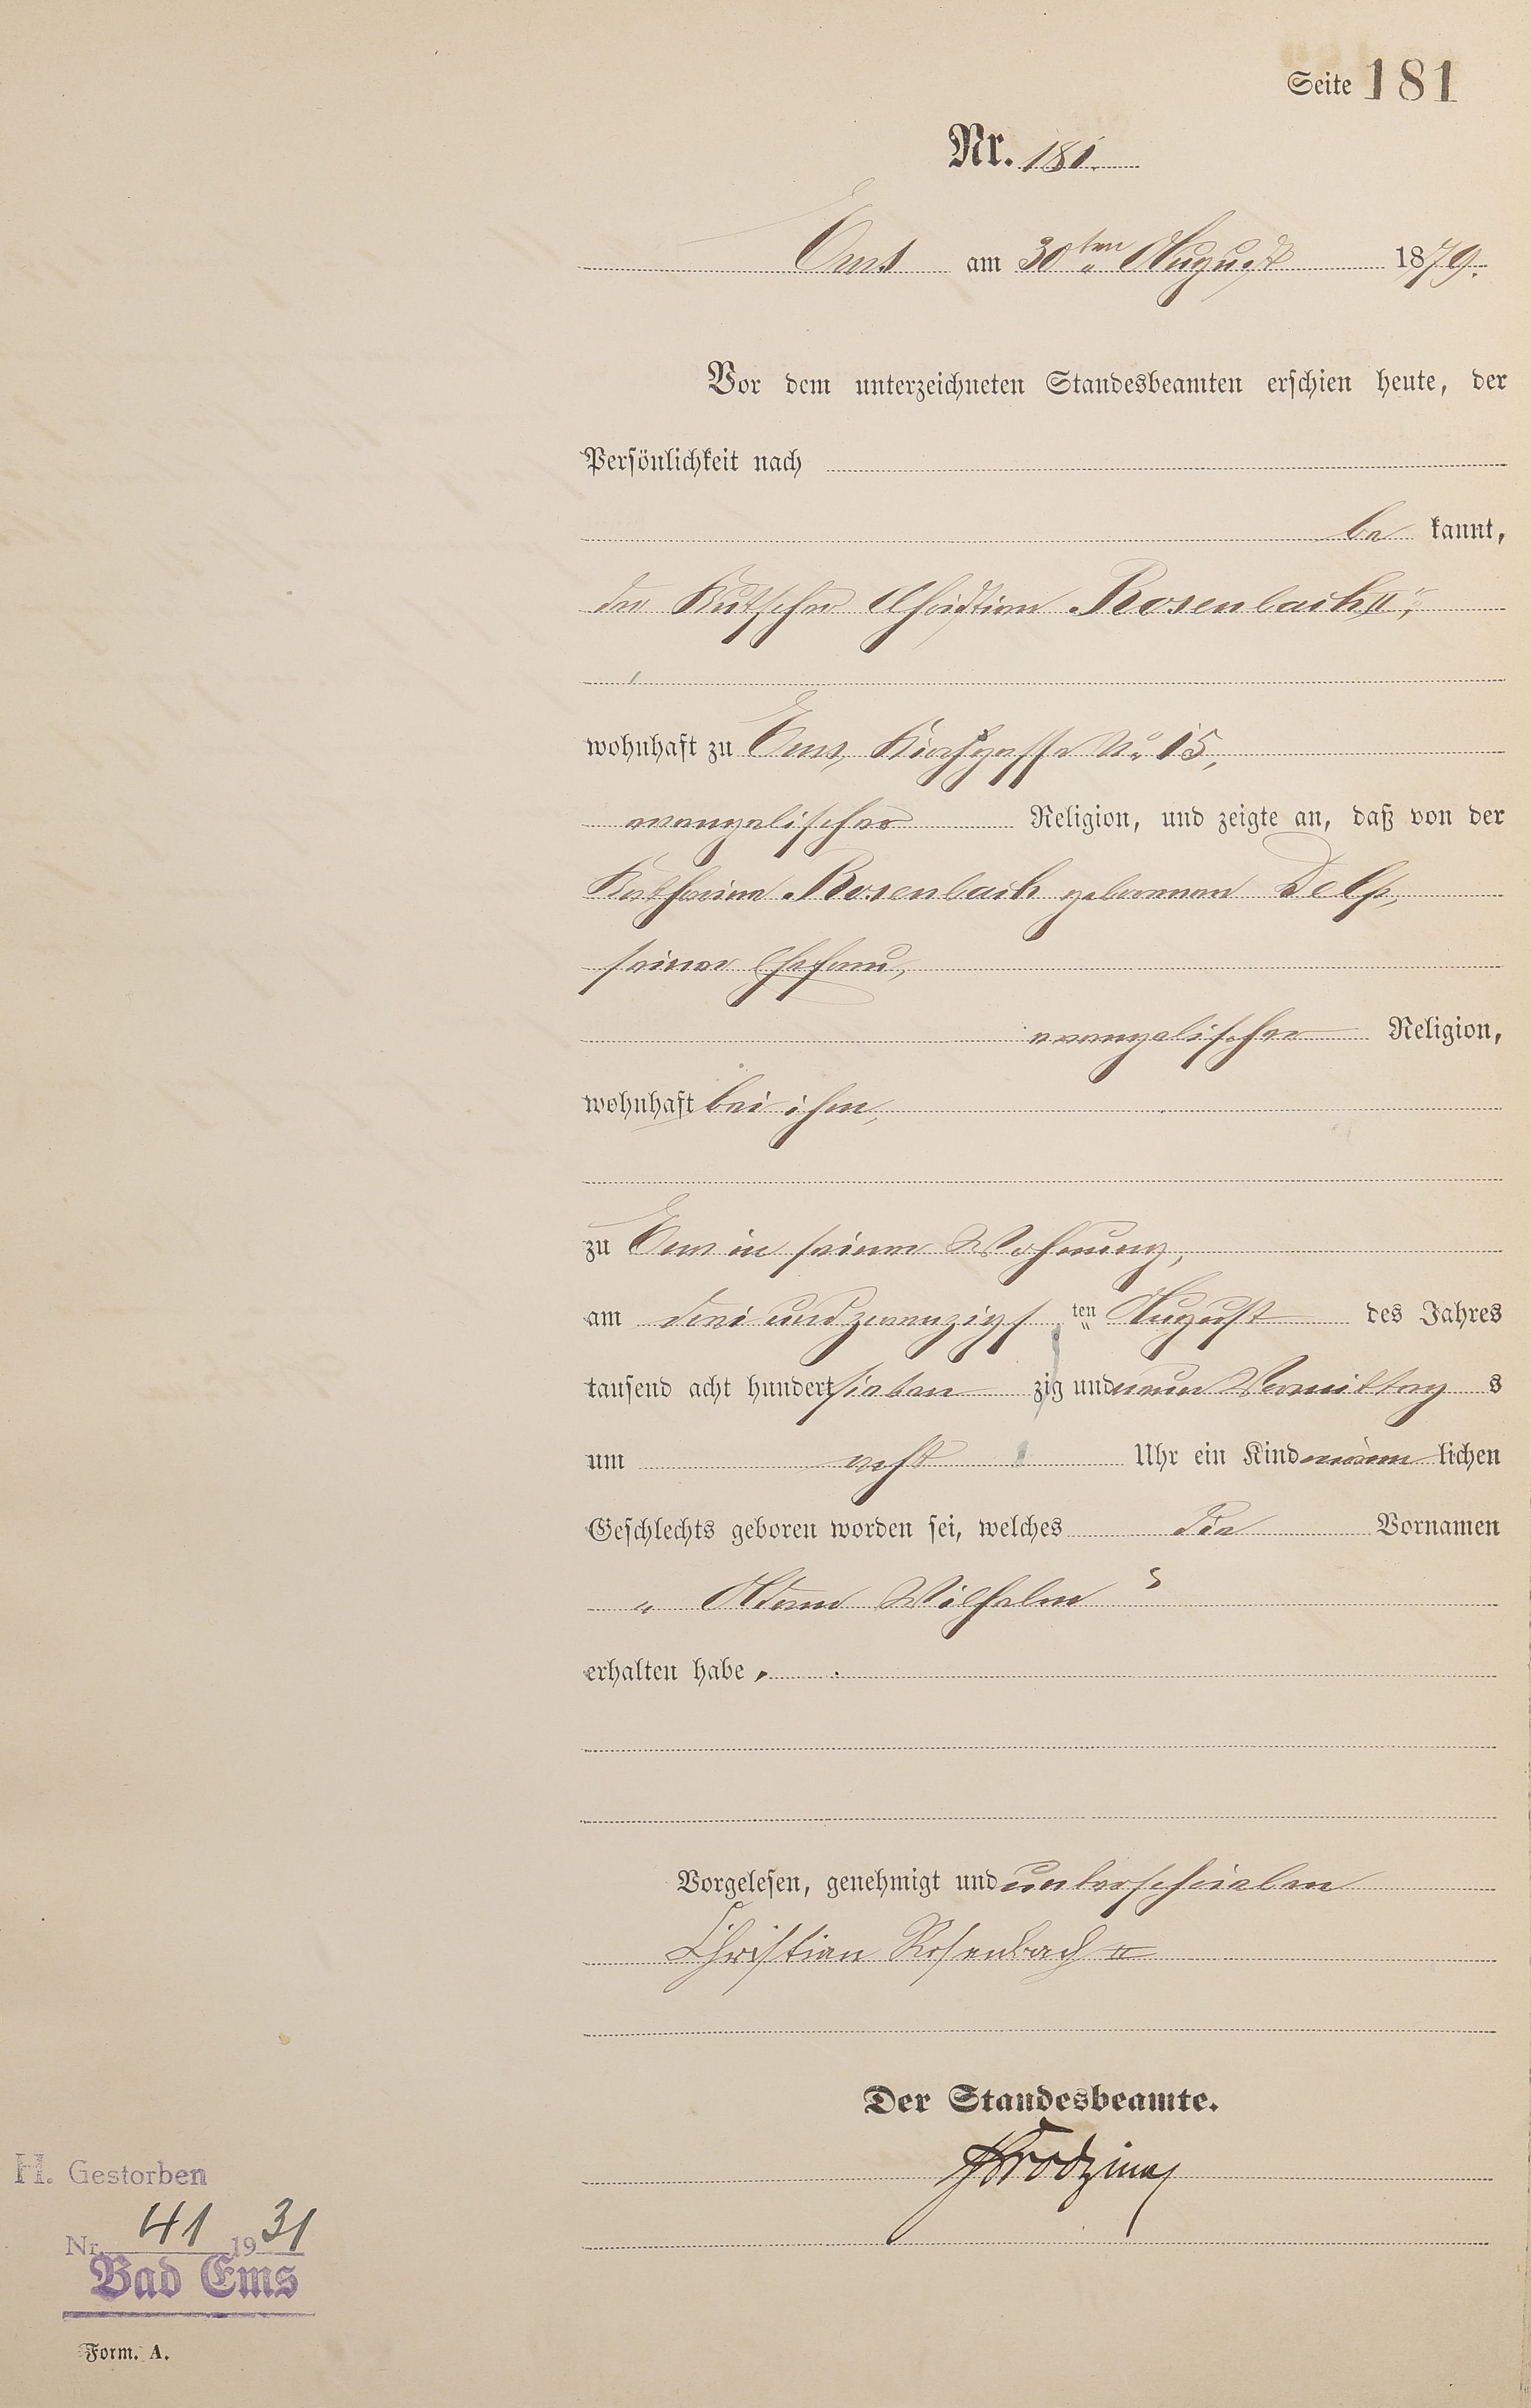 Seite 181
Nr. 181.
Ems am 30ten August 1879.
Vor dem unterzeichneten Standesbeamten erschien heute, der
Persönlichkeit nach
be kannt,
der Kutscher Christian Rosenbach II,
wohnhaft zu Ems, Kirchgasse No 15,
evangelischer Religion, und zeigte an, daß von der
Katharina Rosenbach geborenen Delp,
seiner Ehefrau,
evangelischer Religion,
wohnhaft bei ihm,
zu Ems in seiner Wohnung,
am drei und zwanzigs ten August des Jahres
tausend acht hundert sieben zig und neun Vormittag s
um acht Uhr ein Kind männ lichen
Geschlechts geboren worden sei, welches die Vornamen
„ Adam Wilhelm “
erhalten habe.
Vorgelesen, genehmigt und unterschrieben
Christian Rosenbach II
Der Standesbeamte.
H. Gestorben
Nr. 41 1931
Bad Ems
Form. A.